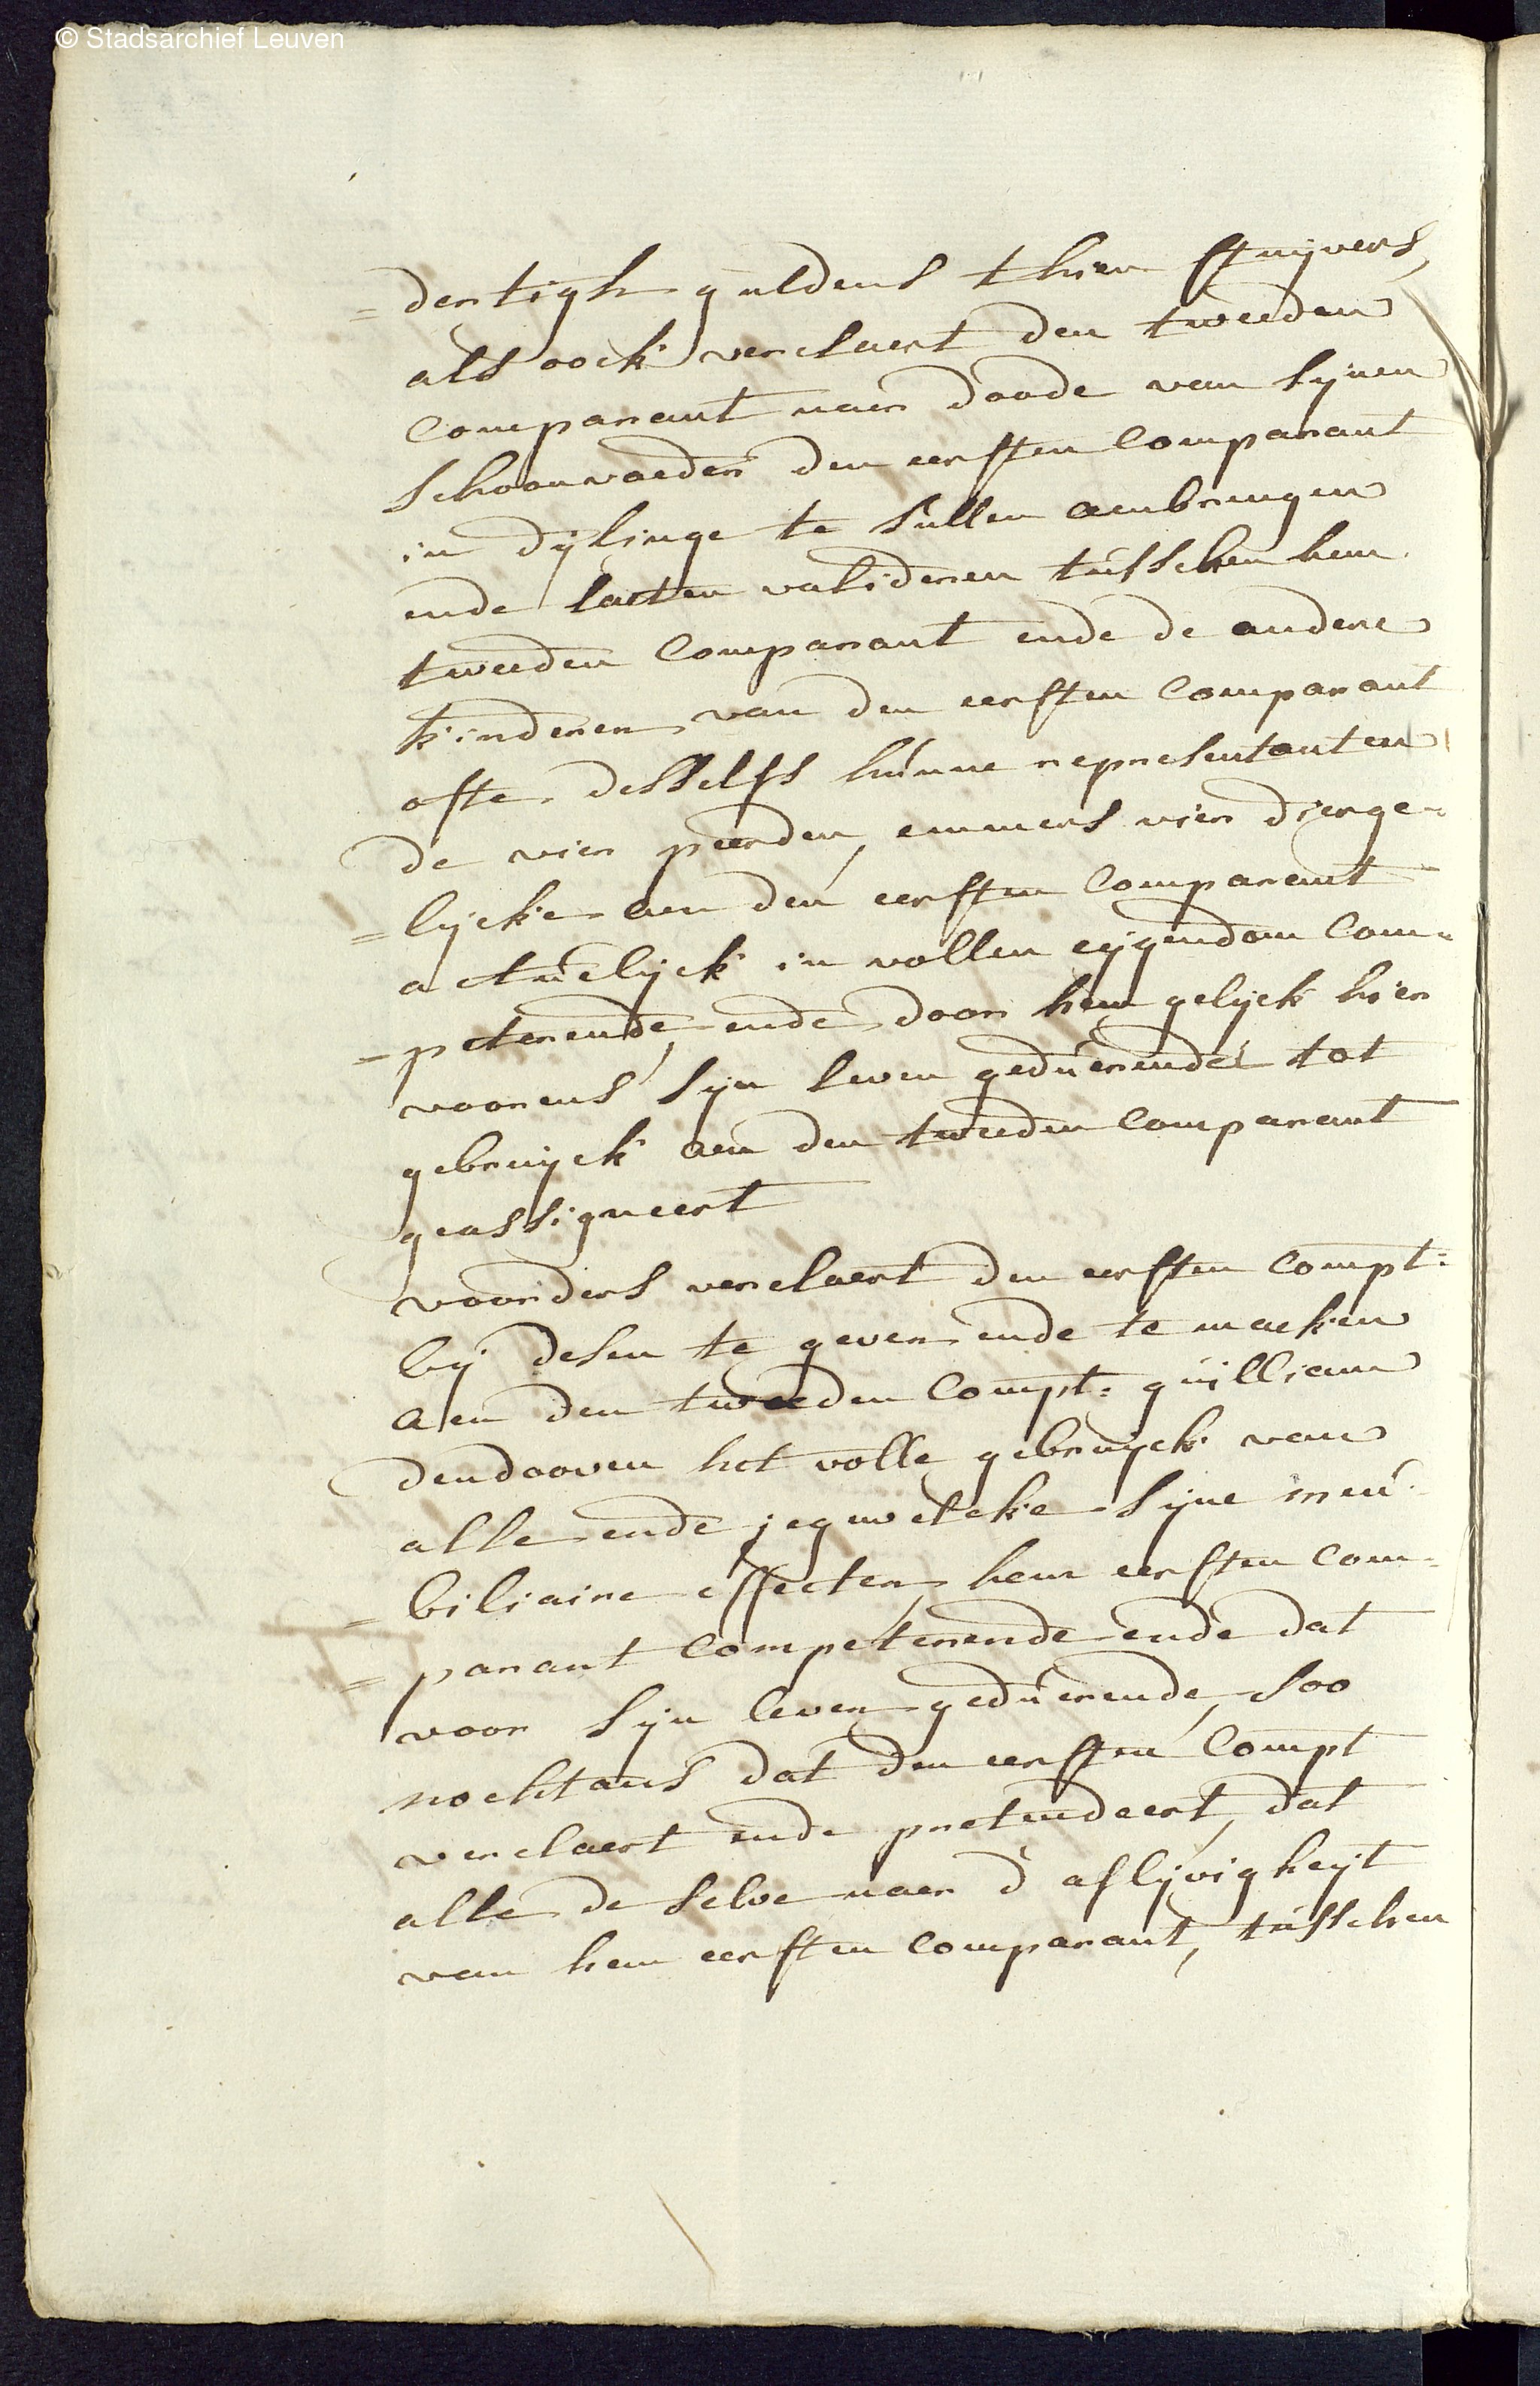 © Stadsarchief Leuven
= dertigh guldens thien stuijvers,
als oock verclaert den tweeden
Comparant naer doode van sijnen
schoonvaeder den eersten Comparant
in dijlinge te sullen aenbrengen
ende laeten valideren tusschen hem
tweeden Comparant ende de andere
kinderen van den eersten Comparant
ofte desselfs hunne representanten
de vier peerden, emmers vier dierge=
= lijcke aen den eersten Comparant
actuelijck in vollen eijgendom Com=
= peterende, ende door hem gelijck hier
voorens sijn leven geduerende tot
gebruijck aen den tweeden Comparant
geassigneert
voorders verclaert den eersten Compt:
bij desen te geven ende te maeken
aen den tweeden Compt: guilliam
dendooven het volle gebruijck van
alle ende jegewelcke sijne meu=
= biliaire effecten, hem eersten Com=
= parant Competerende ende dat
voor sijn leven geduerende, soo
nochtans dat den eersten Compt
verclaert ende pretendeert, dat
alle de selve naer d'aflijvigheijt
van hem eersten Comparant, tusschen